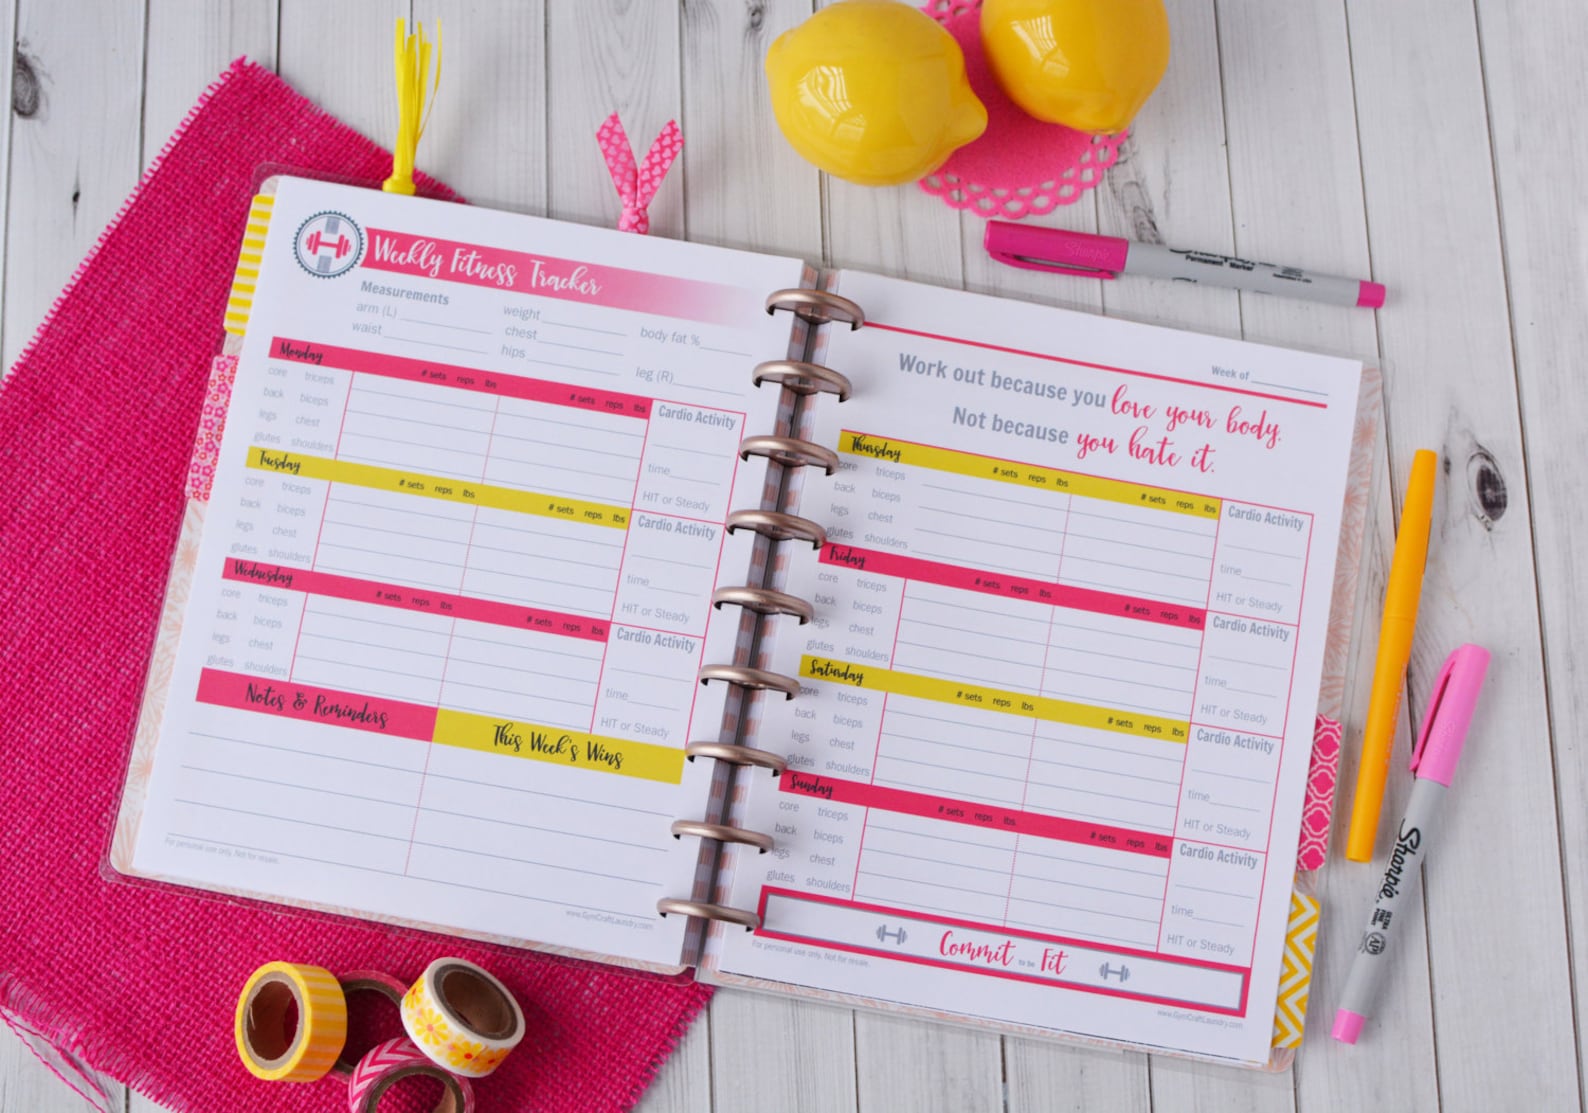 Weekly Fitness Tracker
Measurements
arm (L)
weight
body fat %
waist
chest
hips
leg (R)
Monday
# sets reps lbs
# sets reps lbs
core triceps
back biceps
legs chest
glutes shoulders
Cardio Activity
time
HIT or Steady
Tuesday
# sets reps lbs
# sets reps lbs
core triceps
back biceps
legs chest
glutes shoulders
Cardio Activity
time
HIT or Steady
Wednesday
# sets reps lbs
# sets reps lbs
core triceps
back biceps
legs chest
glutes shoulders
Cardio Activity
time
HIT or Steady
Notes & Reminders
This Week's Wins
For personal use only. Not for resale.
www.GymCraftLaundry.com
Week of
Work out because you love your body.
Not because you hate it.
Thursday
# sets reps lbs
# sets reps lbs
core triceps
back biceps
legs chest
glutes shoulders
Cardio Activity
time
HIT or Steady
Friday
# sets reps lbs
# sets reps lbs
core triceps
back biceps
legs chest
glutes shoulders
Cardio Activity
time
HIT or Steady
Saturday
# sets reps lbs
# sets reps lbs
core triceps
back biceps
legs chest
glutes shoulders
Cardio Activity
time
HIT or Steady
Sunday
# sets reps lbs
# sets reps lbs
core triceps
back biceps
legs chest
glutes shoulders
Cardio Activity
time
HIT or Steady
Commit to be Fit
For personal use only. Not for resale.
www.GymCraftLaundry.com
Sharpie
Permanent Marker
Sharpie
ULTRA
FINE
POINT
AP